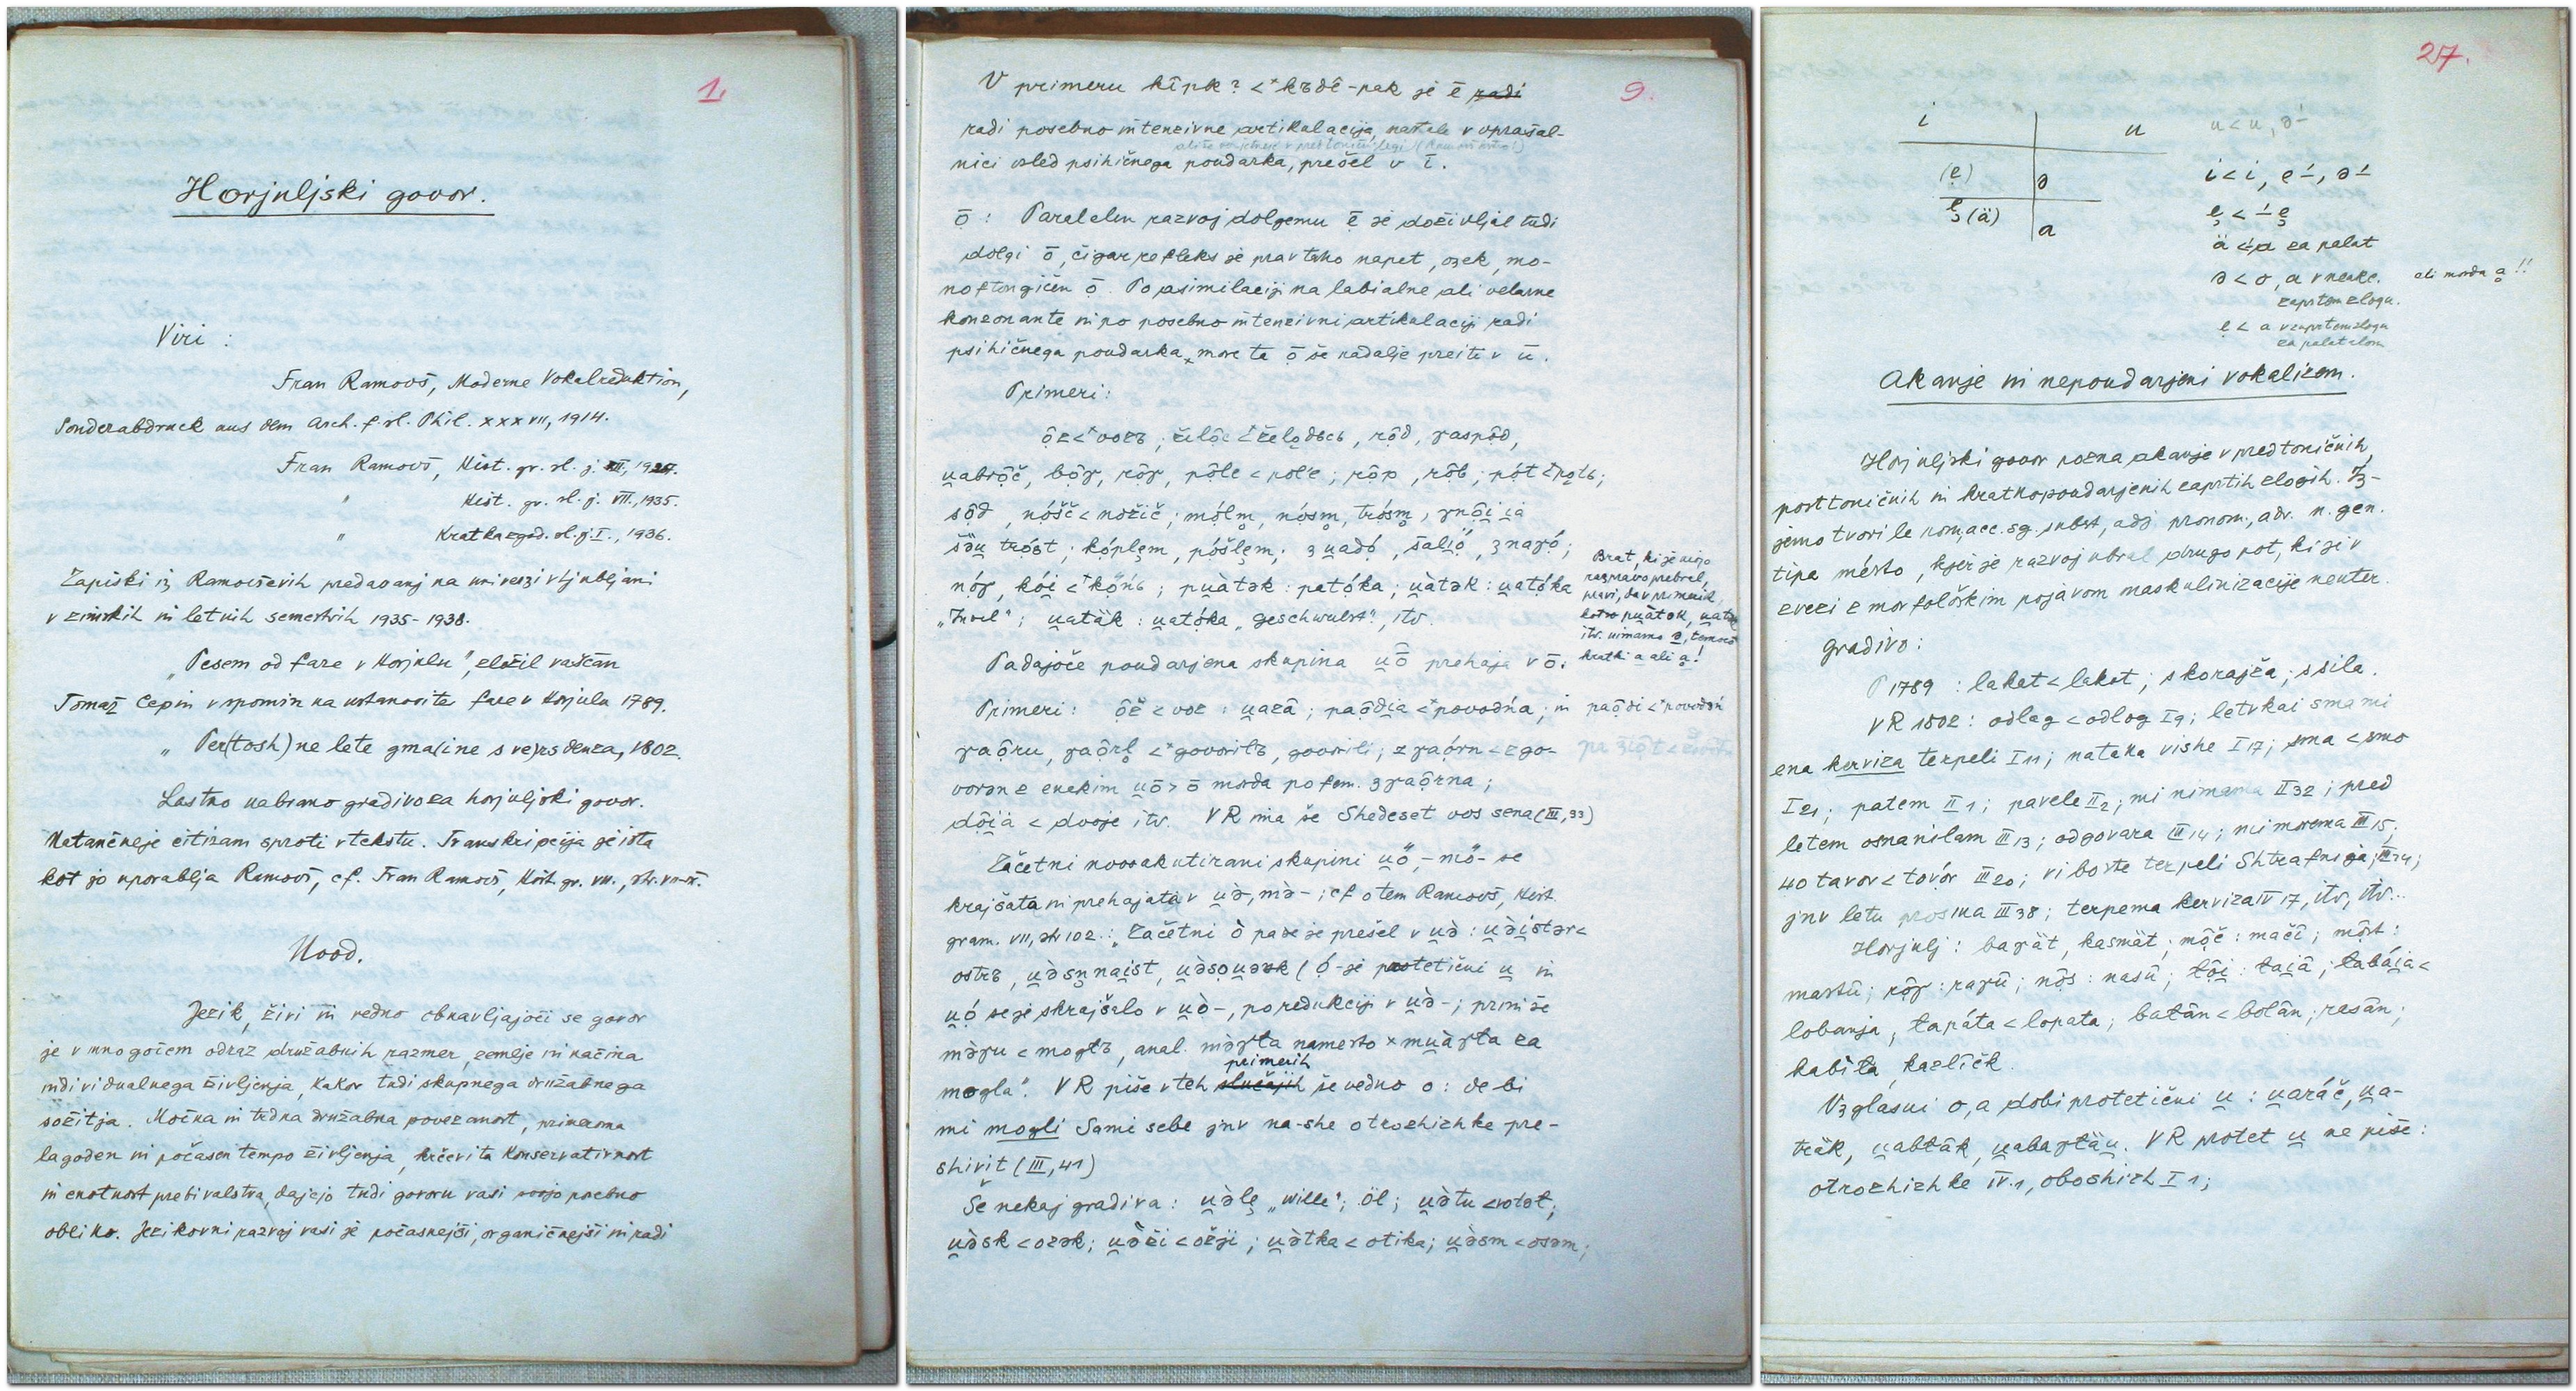 1.
Horjuljski govor.
Viri :
Fran Ramovš, Moderne Vokalreduktion,
Sonderabdruck aus dem Arch. f. sl. Phil. XXXVII, 1914.
Fran Ramovš, Hist. gr. sl. j.
" Hist. gr. sl. j. VII., 1935.
" Kratka zgod. sl. j. I., 1936.
Zapiski iz Ramovševih predavanj na univerzi v Ljubljani
v zimskih in letnih semestrih 1935-1938.
„Pesem od fare v Horjulu", zložil vaščan
Tomaž Čepin v spomin na ustanovitev fare v Horjulu 1789.
„ Per(tosh)ne lete gmajne 1802.
Lastno nabrano gradivo za horjuljski govor.
Natančneje citiram sproti v tekstu. Transkripcija je ista
kot jo uporablja Ramovš, cf. Fran Ramovš, Hist. gr. VII., str. VII-IX.
Uvod.
Jezik, živi in vedno obnavljajoči se govor
je v mnogočem odraz družabnih razmer, zemlje in načina
individualnega življenja, kakor tudi skupnega družabnega
sožitja. Močna in trdna družabna povezanost, primeroma
lagoden in počasen tempo življenja, krčevita konservativnost
in enotnost prebivalstva, dajejo tudi govoru vasi svojo posebno
obliko. Jezikovni razvoj vasi je počasnejši, organičnejši in radi
9.
V primeru kîpk? < *kъdě̂-pak je ē radi
radi posebno intenzivne artikulacije, nastale v vprašal-
nici vsled psihičnega poudarka, prešel v ī.
ō : Paralelen razvoj dolgemu ē je doživljal tudi
dolgi ō, čigar refleks je prav tako napet, ozek, mo-
noftongičen ọ̄. Po asimilaciji na labialne ali velarne
konzonante in po posebno intenzivni artikulaciji radi
psihičnega poudarka, more ta ọ̄ še nadalje preiti v ū.
Primeri:
ọ̑z < *vozъ ; želọ̑c < želǫdьcь, rọ̑d, γaspọ̑d,
u̯abrọ̑č, bọ̑γ, rọ̑γ, pọ̑le < pol'e ; rọ̑p, rọ̑b ; pọ́t < pǫtь ;
sọ̑d, nóšč < nožič ; mọ́lm, nósm, trósm, γnọ̑i̯ i̯a
šə̏u̯ trọ́st ; kọ́plẹm, pọ́šlẹm ; z u̯adọ́, šali̯ọ́, z naγọ́ ;
nọ́γ, kọ́i̯ < *kȍńь ; pu̯àtək : patọ́ka ; u̯àtək : u̯atọ́ka
„Insel" ; u̯atȁk : u̯atọ́ka „Geschwulst", itv.
Brat, ki je mojo
razpravo prebral,
pravi, da v primerih
kot so pu̯àtək, u̯atək
itv. nimamo ə, temveč
kratki a ali ạ!
Padajoče poudarjena skupina u̯ō̑ prehaja v ō.
Primeri : ọ̑ž < voz : u̯azȃ ; paọ̑di̯a < *povodńa ; in paọ̑di < *povodən
γaọ̑ru, γaọ̑rl < *govorilъ, govorili ; z γaọ̑rn < zgo-
vorən z enakim u̯ō > ō morda po fem. zγaọ̑rna ;
dọ̑i̯a < dvoje itv. VR ima še Shedeset vos sena (III, 33)
Začetni novoakutirani skupini u̯ő-, mő- se
krajšata in prehajata v u̯ə̀, mə̀- ; cf o tem Ramovš, Hist.
gram. VII, str 102.: „Začetni ò pa se je prešel v u̯ə̀ : u̯ə̀i̯stər <
ostrъ, u̯ə̀sṇnai̯st, u̯ə̀sou̯ək (ó- je protetični u̯ in
u̯ó se je skrajšalo v u̯ò-, po redukciji v u̯ə̀- ; primi še
mə̀γu < moglъ, anal. mə̀γla namesto × mu̯àγla za
mogla". VR piše v teh slučajih primerih še vedno o : de bi
mi mogli Sami sebe jnv na-she otrozhizhke pre-
shivit (III, 41)
Še nekaj gradiva : u̯ə̀lẹ „Wille" ; öl ; u̯ə̀tu < votəl ;
u̯ə̀sk < ozək ; u̯ə̀ži < ožji ; u̯ə̀tka < otika ; u̯ə̀sm < osəm ;
27.
i u
(ẹ) ə
ę (ä) a
u < u, ə-
i < i, ẹ-́, ə-́
ę < -́ ę
ä < -́a za palat
ə < o, a v nenagl. ali morda ạ!!
zaprtem zlogu.
ẹ < a v zaprtem zlogu
za palatalom
Akanje in nepoudarjeni vokalizem.
Horjuljski govor pozna akanje v predtoničnih,
posttoničnih in kratkopoudarjenih zaprtih zlogih. Iz-
jemo tvori le nom, acc. sg. subst, adj, pronom., adv. n. gen.
tipa mésto, kjer je razvoj ubral drugo pot, ki je v
zvezi z morfološkim pojavom maskulinizacije neuter.
gradivo :
P 1789 : laket < lakot ; skorajža ; ssila.
VR 1802 : odlag < odlog I9 ; letvkai sma mi
ena kerviza terpeli I11 ; nataka vishe I17 ; sma < smo
I21 ; patem II1 ; pavele II2 ; mi nimama II32 ; pred
letem osnanilam III13 ; odgovara III14 ; mi morema III15 ;
40 tavor < tovór III20 ; vi boste terpeli Shtrafniga
jnv letu prosma III38 ; terpema kerviza IV 17, itv, itv...
Horjulj : baγȁt, kasmȁt ; mọ̑č : mačȋ ; mọ̑st :
mastȗ ; rọ̑γ : raγȗ ; nọ̑s : nasȗ ; tọ̑i̯ : tai̯ȃ ; labái̯a <
lobanja, lapáta < lopata ; batȃn < botȃn ; rasȃn ;
kabȋla, kazlȉčk.
Vzglasni o, a dobi protetični u̯ : u̯aráč, u̯a-
trȁk, u̯abtȃk, u̯abaγtȁu̯. VR protet u̯ ne piše :
otrozhizhke IV.1, oboshizh I 1 ;